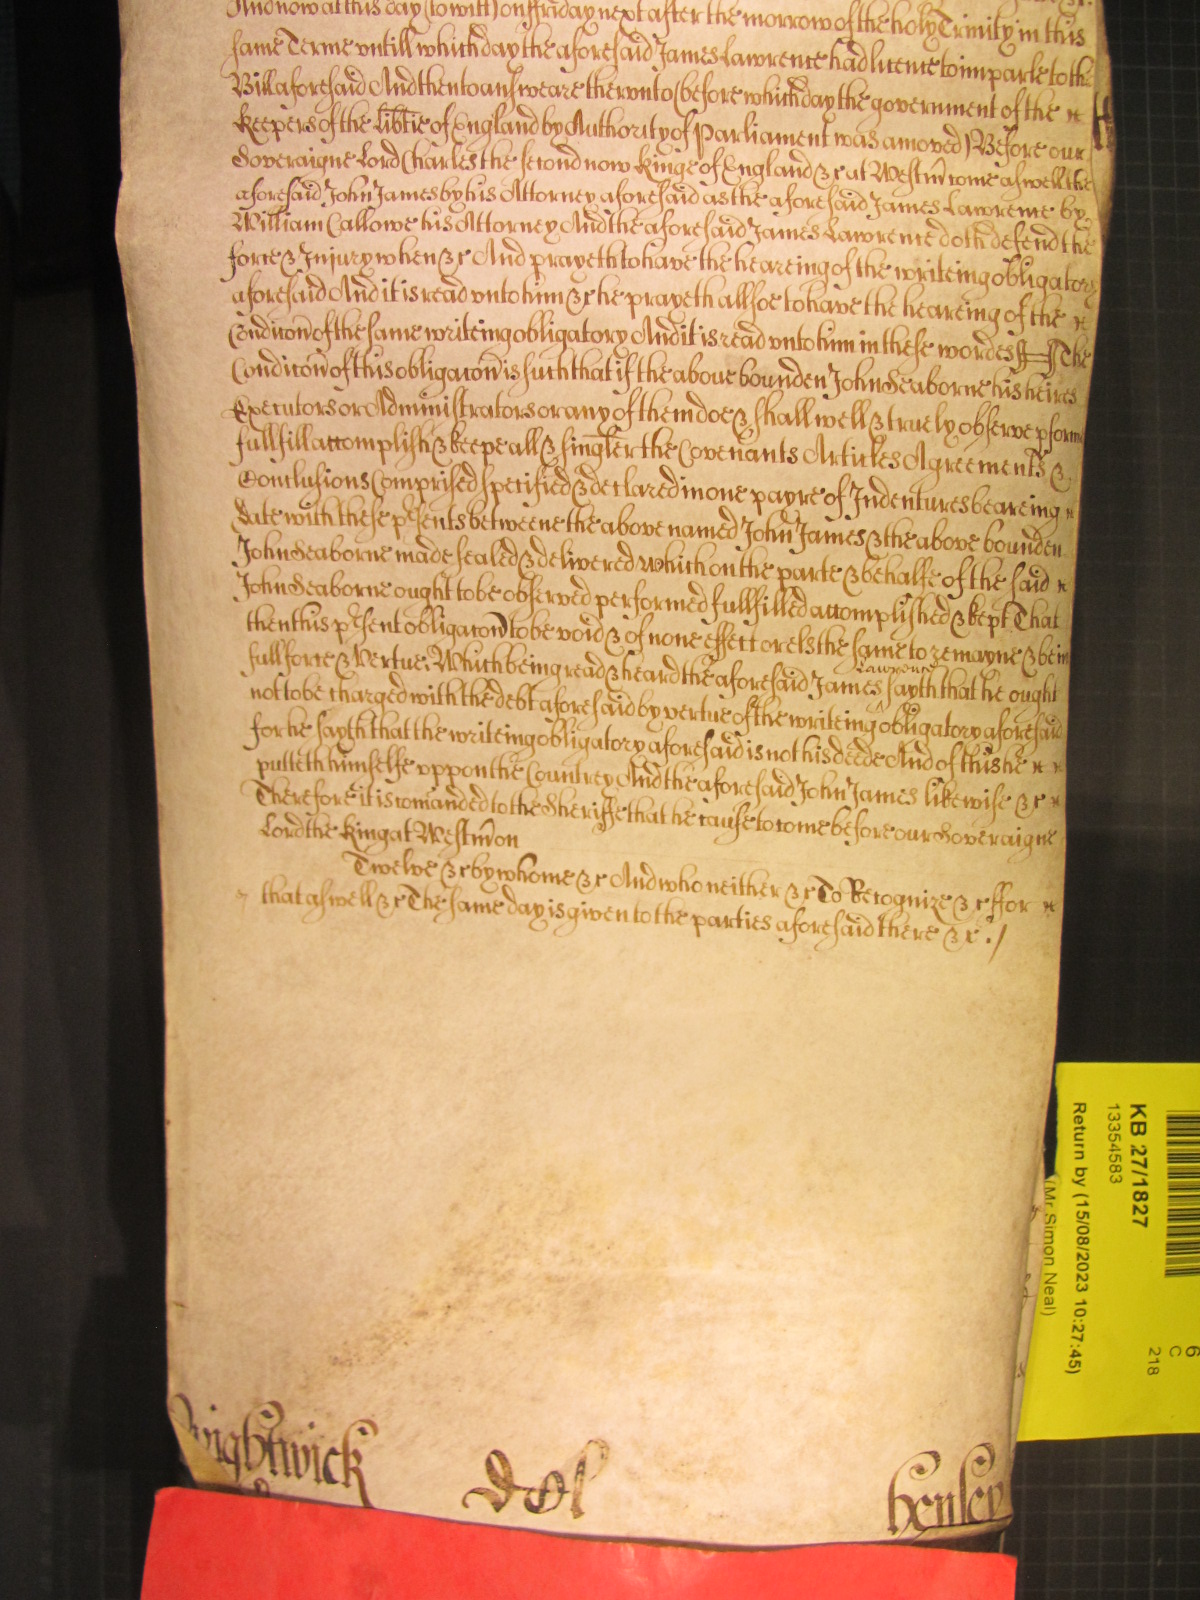 And now at this day (to witt) on ffriday next after the morrow of the holy Trinity in this
same Terme untill which day the aforesaid James Lawrence had licence to imparle to the
Bill aforesaid And then to answeare therunto (before which day the government of the
keepers of the libtie of England by Authority of Parliament was amoved) Before our
Soveraigne Lord Charles the second now Kinge of England &c at Westm̄ come aswell the
aforesaid John James by his Attorney aforesaid as the aforesaid James Lawrence by
William Callowe his Attorney And the aforesaid James Lawrence doth defend the
force & Injury when &c And prayeth to have the heareing of the writeing obligatory
aforesaid And it is read unto him &c he prayeth allsoe to have the heareing of the
Condic̄on of the same writeing obligatory And it is read unto him in these wordes ss The
Condic̄on of this obligac̄on is such that if the above bounden John Seaborne his heires
Executors or Administrators or any of them doe & shall well & truely observe pforme
fullfill accomplish & keepe all & singler the Covenants Articles Agreements &
Conclusions Comprised specified & declared in one payre of Indentures beareing
date with these psents betweene the above named John James & the above bounden
John Seaborne made sealed & delivered which on the parte & behalfe of the said
John Seaborne ought to be observed performed fullfilled accomplished & kept That
then this psent obligac̄on to be void & of none effect or els the same to remayne & be in
full force & vertue. Which being read & heard the aforesaid James Lawrence sayth that he ought
not to be charged with the debt aforesaid by vertue of the writeing obligatory aforesaid
for he sayth that the writeing obligatory aforesaid is not his deede And of this he
putteth himselfe uppon the Countrey And the aforesaid John James likewise &c
Therefore it is com̄anded to the Sheriffe that he cause to come before our Soveraigne
Lord the King at Westm̄ on
Twelve &c by whome &c And who neither &c To Recognize &c ffor
that aswell &c The same day is given to the parties aforesaid there &c ./
Wightwick
dol
Henley
KB 27/1827
13354583
Return by (15/08/2023 10:27:45)
(Mr Simon Neal)
6
C
218